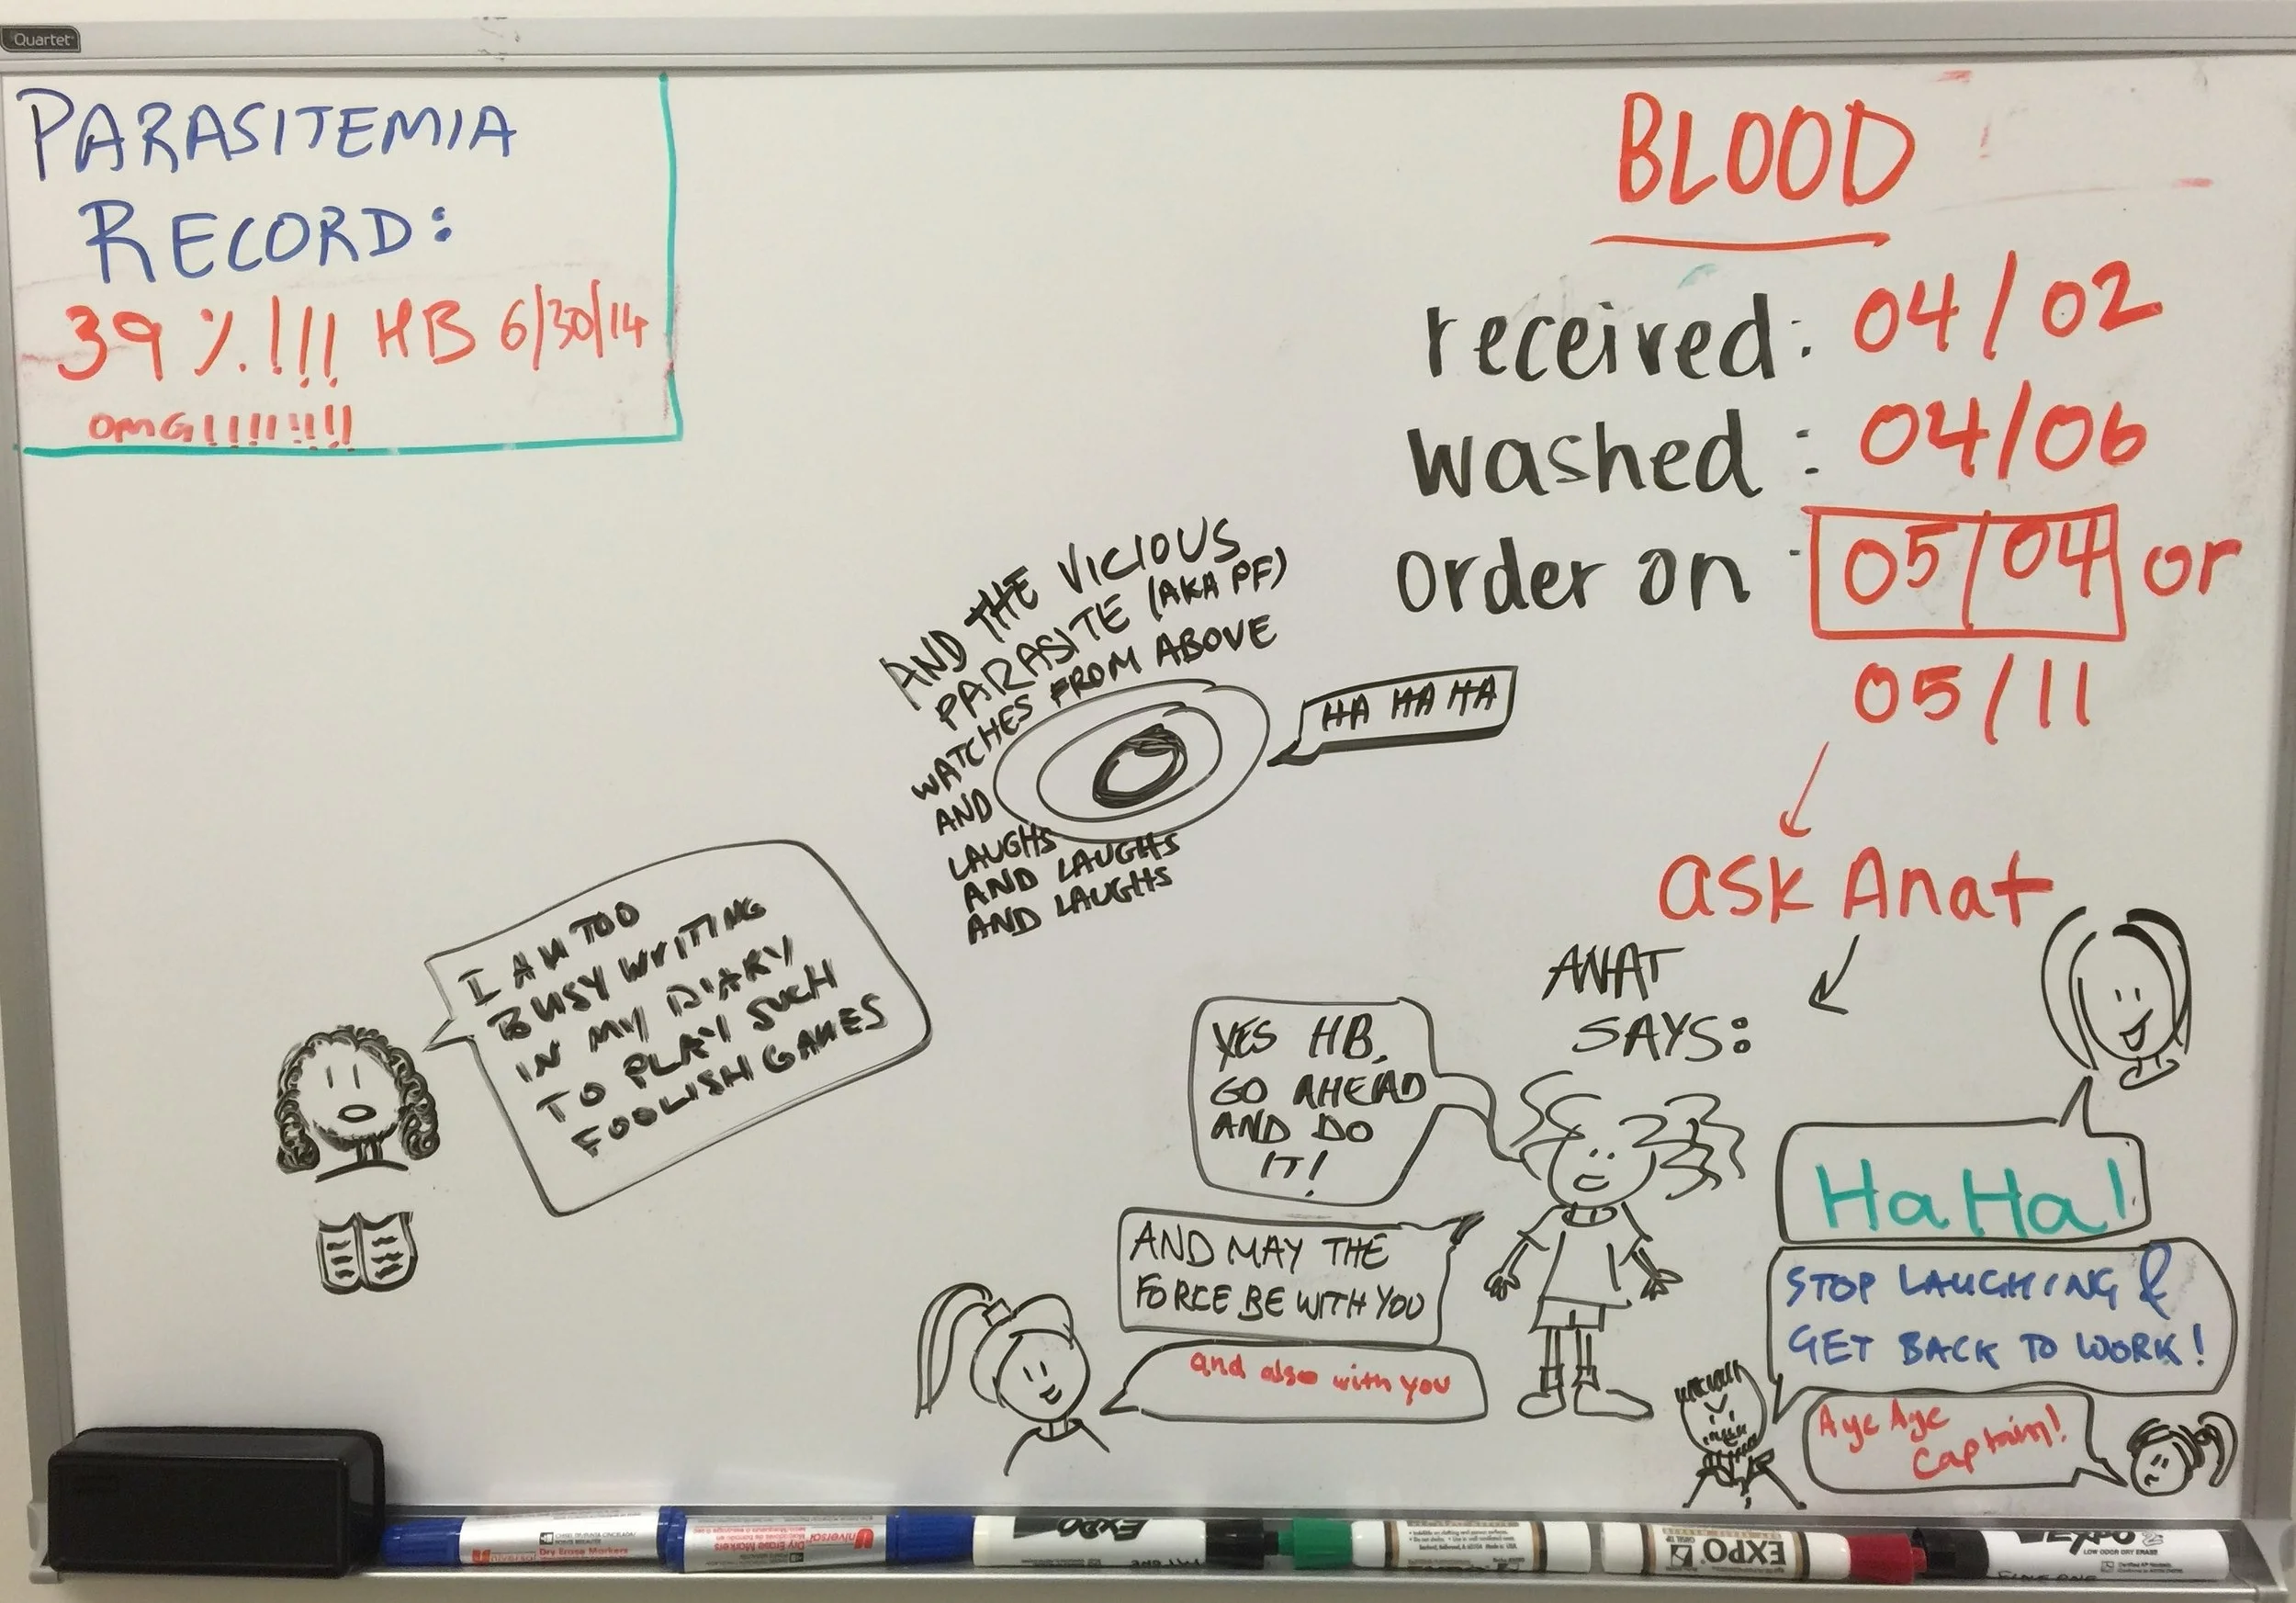 Quartet
PARASITEMIA
RECORD:
39%!!! HB 6/30/14
OMG!!!!!!!!
BLOOD
received: 04/02
washed: 04/06
order on : 05/04 or
05/11
ask Anat
AND THE VICIOUS
PARASITE (AKA PF)
WATCHES FROM ABOVE
AND
LAUGHS
AND LAUGHS
AND LAUGHS
HA HA HA
I AM TOO
BUSY WRITING
IN MY DIARY
TO PLAY SUCH
FOOLISH GAMES
ANAT
SAYS:
YES HB.
GO AHEAD
AND DO
IT!
AND MAY THE
FORCE BE WITH YOU
and also with you
Ha Ha!
STOP LAUGHING &
GET BACK TO WORK!
Aye Aye
Captain!
Universal
Dry Erase Markers
Universal
Dry Erase Markers
EXPO
EXPO
EXPO 2
LOW ODOR DRY ERASE